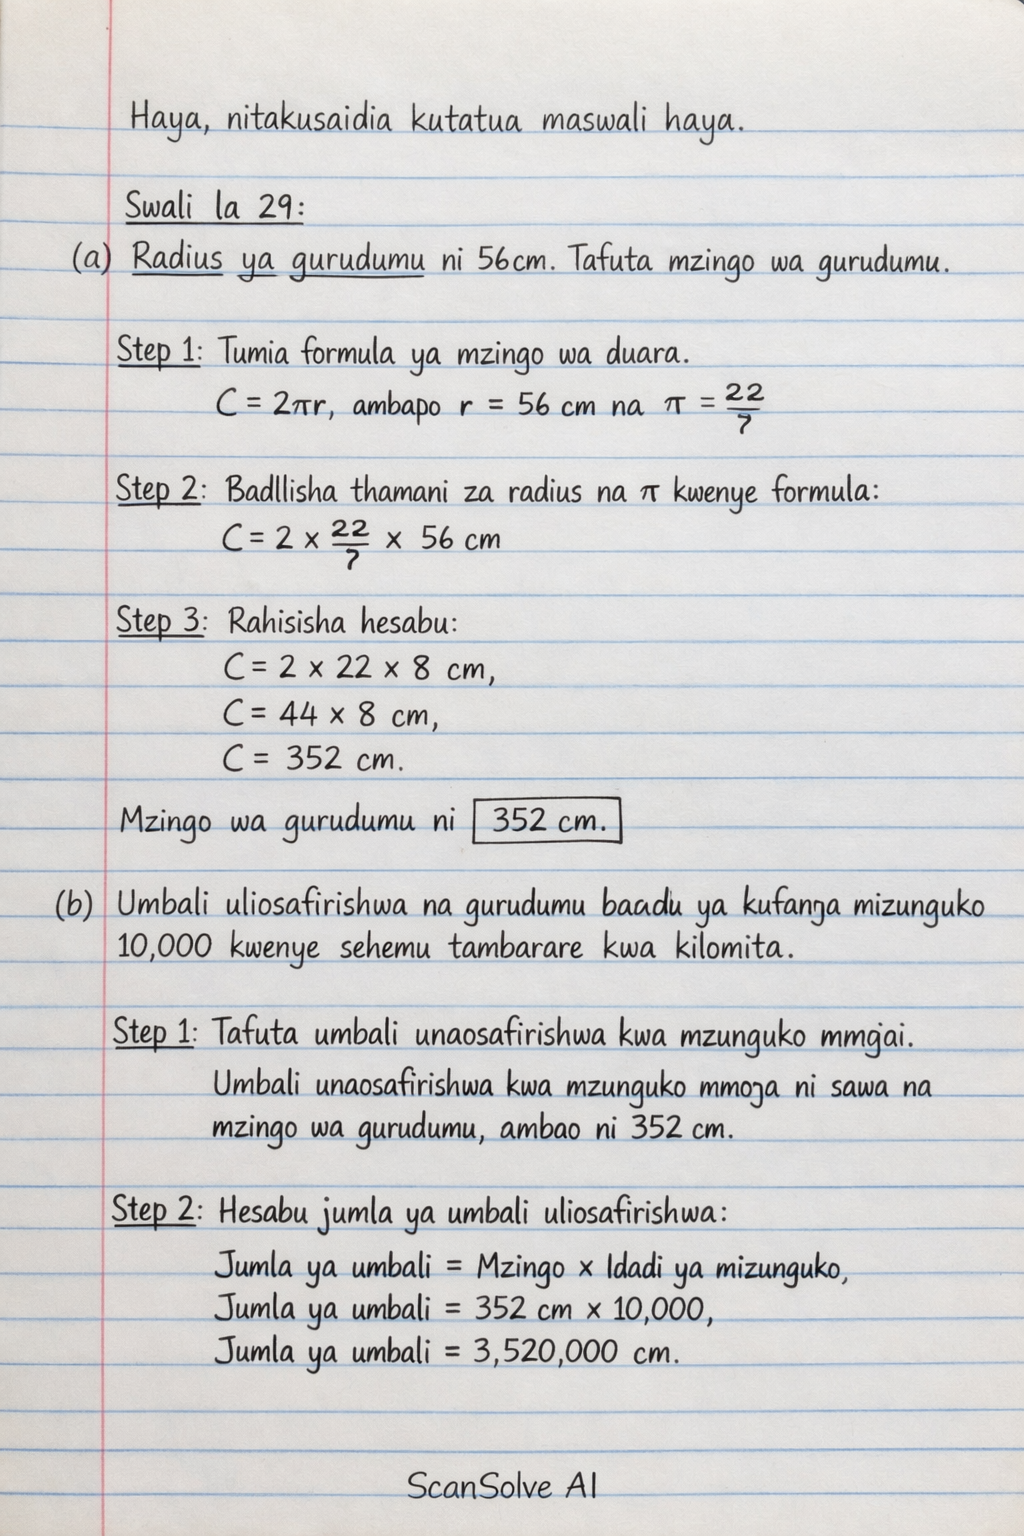 Haya, nitakusaidia kutatua maswali haya.
Swali la 29:
(a) Radius ya gurudumu ni 56cm. Tafuta mzingo wa gurudumu.
Step 1: Tumia formula ya mzingo wa duara.
C = 2πr, ambapo r = 56 cm na π = 22/7
Step 2: Badllisha thamani za radius na π kwenye formula:
C = 2 × 22/7 × 56 cm
Step 3: Rahisisha hesabu:
C = 2 × 22 × 8 cm,
C = 44 × 8 cm,
C = 352 cm.
Mzingo wa gurudumu ni 352 cm.
(b) Umbali uliosafirishwa na gurudumu baadu ya kufanja mizunguko
10,000 kwenye sehemu tambarare kwa kilomita.
Step 1: Tafuta umbali unaosafirishwa kwa mzunguko mmgjai.
Umbali unaosafirishwa kwa mzunguko mmoja ni sawa na
mzingo wa gurudumu, ambao ni 352 cm.
Step 2: Hesabu jumla ya umbali uliosafirishwa:
Jumla ya umbali = Mzingo × Idadi ya mizunguko,
Jumla ya umbali = 352 cm × 10,000,
Jumla ya umbali = 3,520,000 cm.
ScanSolve AI